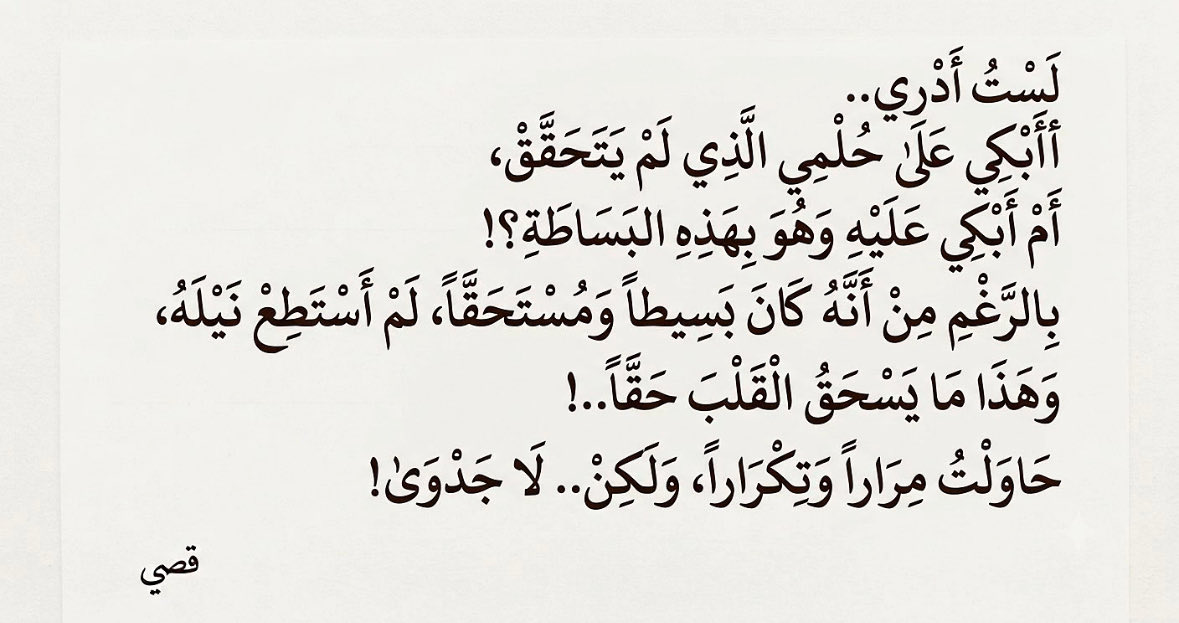 لَسْتُ أَدْرِي..
أأَبْكِي عَلَىٰ حُلْمِي الَّذِي لَمْ يَتَحَقَّقْ،
أَمْ أَبْكِي عَلَيْهِ وَهُوَ بِهَذِهِ البَسَاطَةِ؟!
بِالرَّغْمِ مِنْ أَنَّهُ كَانَ بَسِيطاً وَمُسْتَحَقَّاً، لَمْ أَسْتَطِعْ نَيْلَهُ،
وَهَذَا مَا يَسْحَقُ الْقَلْبَ حَقَّاً..!
حَاوَلْتُ مِرَاراً وَتِكْرَاراً، وَلَكِنْ.. لَا جَدْوَىٰ!
قصي